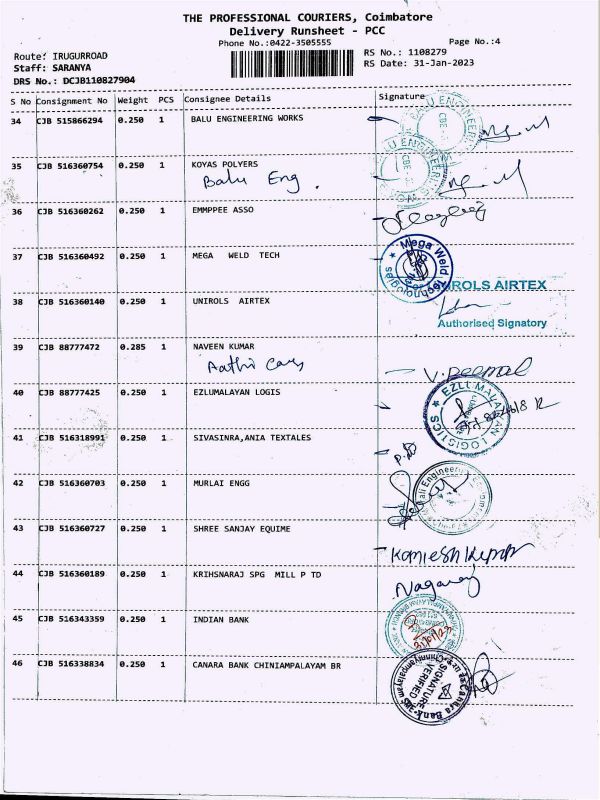 THE PROFESSIONAL COURIERS, Coimbatore
Delivery Runsheet - PCC
Phone No.:0422-3505555
Page No.:4
Route: IRUGURROAD
RS No.: 1108279
Staff: SARANYA
RS Date: 31-Jan-2023
DRS No.: DCJB110827904
S No Consignment No Weight PCS Consignee Details Signature
34 CJB 515866294 0.250 1 BALU ENGINEERING WORKS
35 CJB 516360754 0.250 1 KOYAS POLYERS
Balu Eng.
36 CJB 516360262 0.250 1 EMMPPEE ASSO
37 CJB 516360492 0.250 1 MEGA WELD TECH
Mega Weld Technologies
38 CJB 516360140 0.250 1 UNIROLS AIRTEX
UNIROLS AIRTEX
Authorised Signatory
39 CJB 88777472 0.285 1 NAVEEN KUMAR
40 CJB 88777425 0.250 1 EZLUMALAYAN LOGIS
EZLUMALAYAN LOGISTICS
41 CJB 516318991 0.250 1 SIVASINRA,ANIA TEXTALES
42 CJB 516360703 0.250 1 MURLAI ENGG
43 CJB 516360727 0.250 1 SHREE SANJAY EQUIME
44 CJB 516360189 0.250 1 KRIHSNARAJ SPG MILL P TD
Nagaraj
45 CJB 516343359 0.250 1 INDIAN BANK
31/01/23
46 CJB 516338834 0.250 1 CANARA BANK CHINIAMPALAYAM BR
SIGNATURE
VERIFIED
Canara Bank